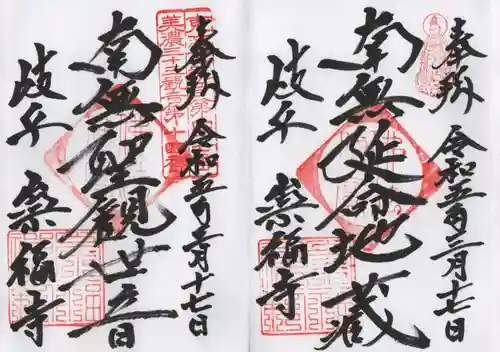 奉拝
令和五年三月十七日
美濃三十三観音第十四番
南無聖観世音
岐阜
崇福寺
奉拝
令和五年三月十七日
南無延命地蔵
岐阜
崇福寺